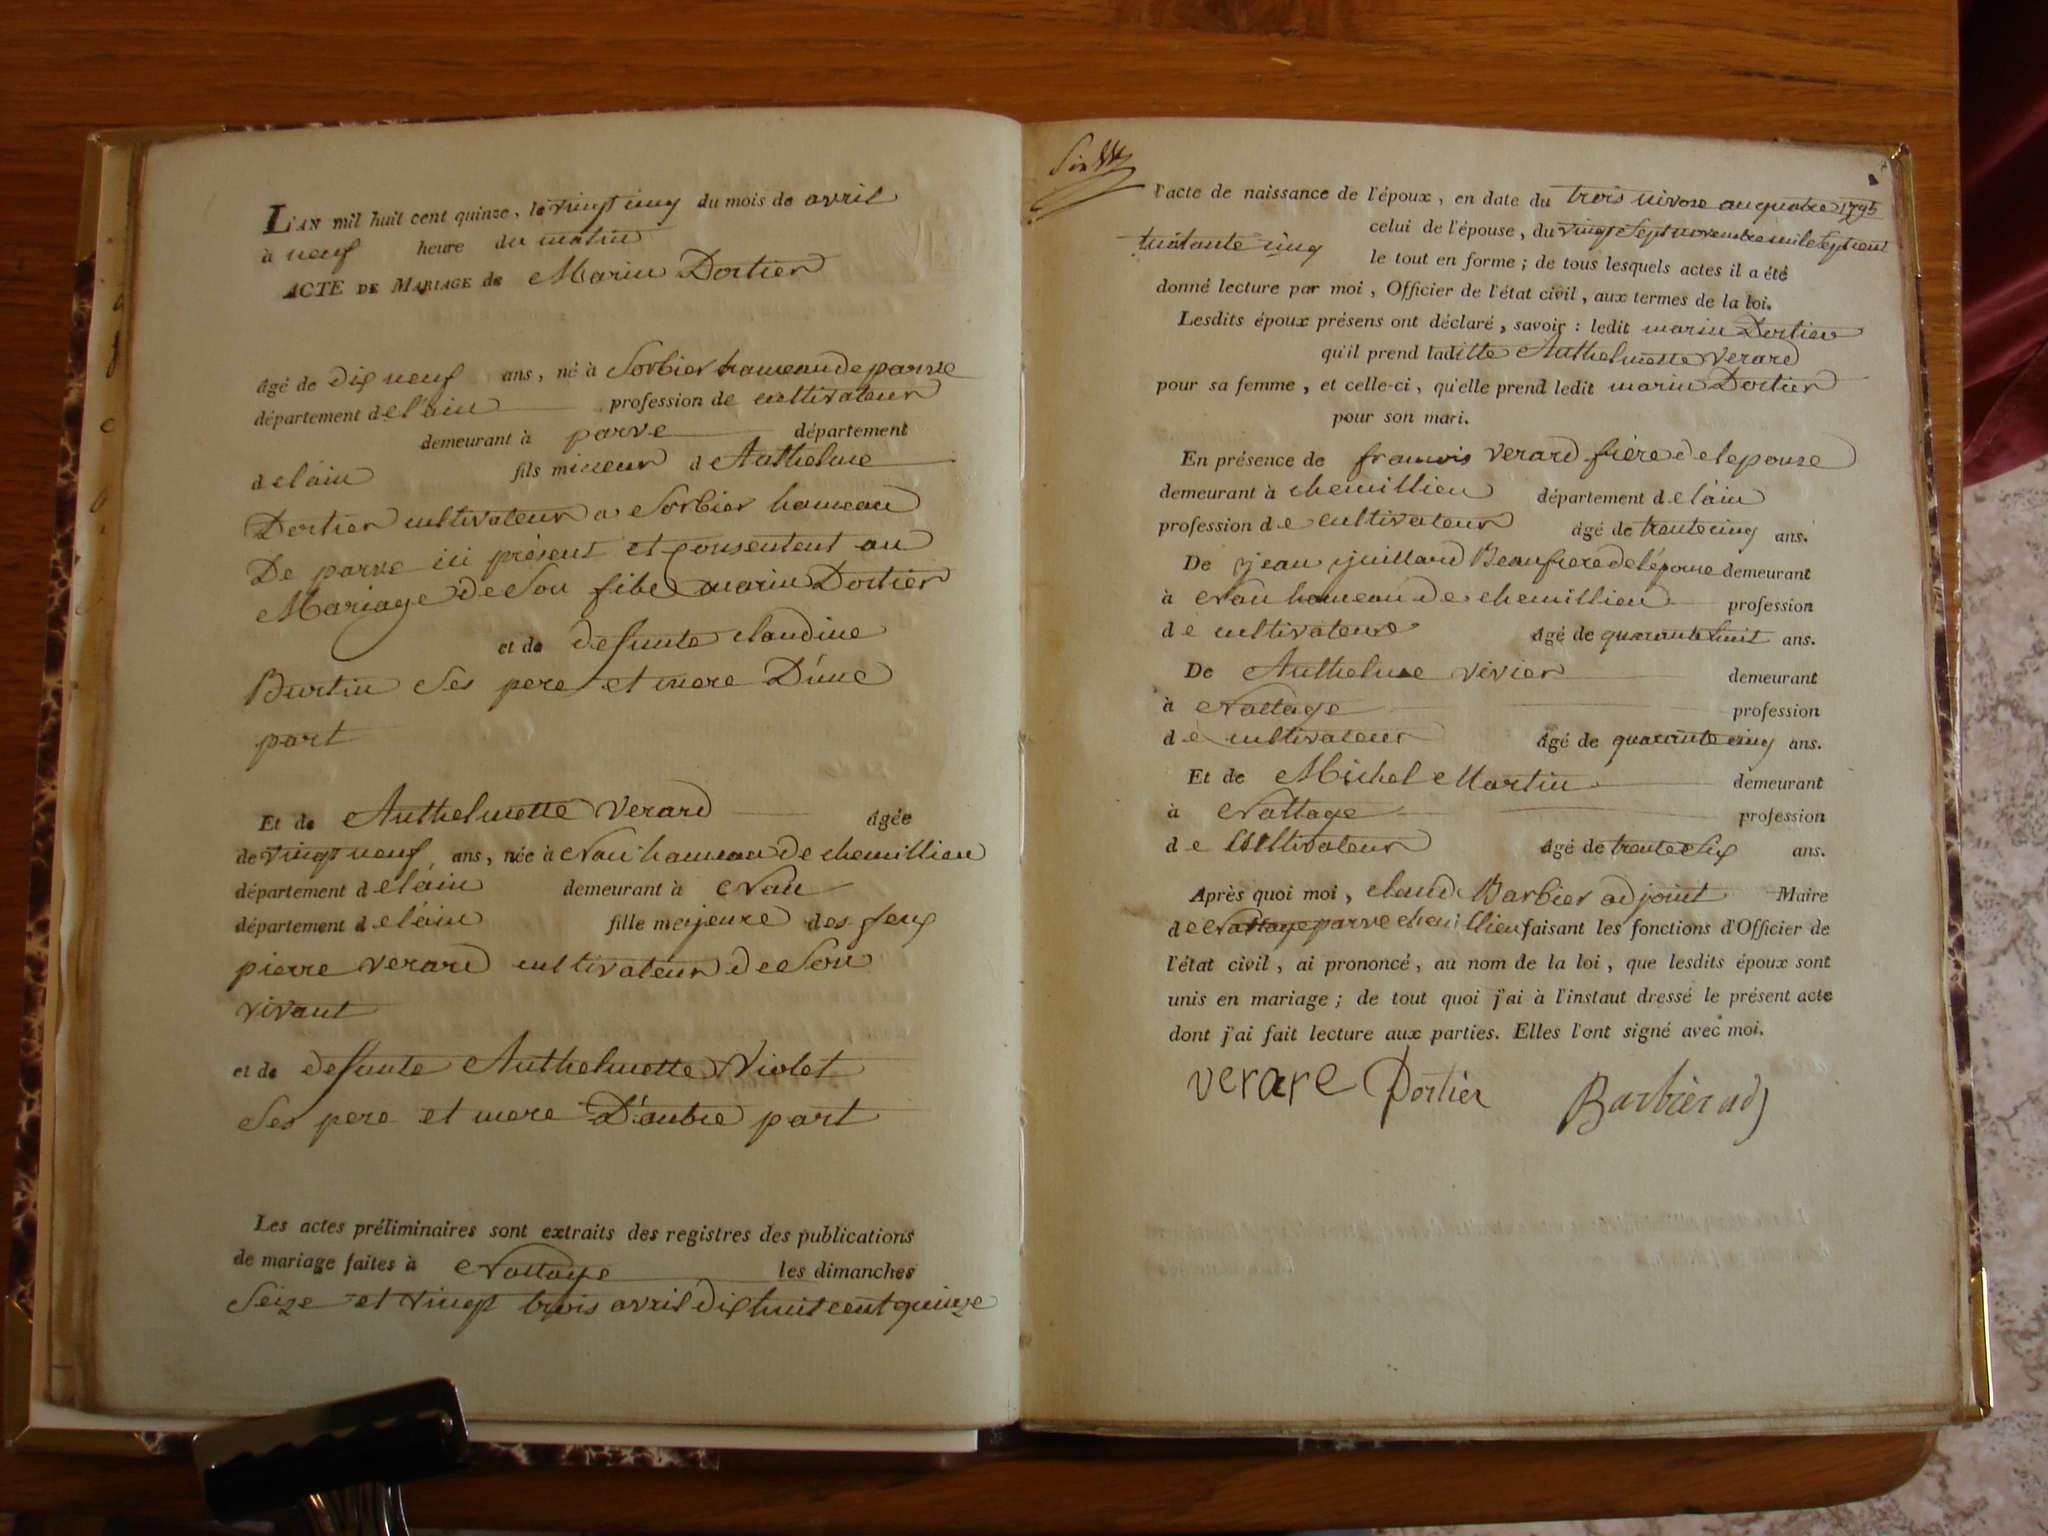 L'AN mil huit cent quinze, le vingt cinq du mois de avril
à neuf heure du matin
ACTE DE MARIAGE de Marin Dortier
âgé de dix neuf ans, né à Sorbier hameau de parve
département de l'ain profession de cultivateur
demeurant à parve département
de l'ain fils mineur d Anthelme
Dortier cultivateur a Sorbier hameau
De parve ici présent et consentent au
Mariage de Son fils marin Dortier
et de defunte claudine
Burtin Ses pere et mere D'une
part
Et de Anthelmette verard âgée
de vingt neuf ans, née à Nan hameau de chemillieu
département de l'ain demeurant à Nan
département de l'ain fille majeure des feux
pierre verard cultivateur de Son
vivant
et de defunte Anthelmette Violet
Ses pere et mere D'autre part
Les actes préliminaires sont extraits des registres des publications
de mariage faites à Nattage les dimanches
Seize et vingt trois avril dix huit cent quinze
l'acte de naissance de l'époux, en date du trois nivose an quatre 1795
celui de l'épouse, du vingt Sept novembre mil Sept cent
le tout en forme ; de tous lesquels actes il a été
donné lecture par moi, Officier de l'état civil, aux termes de la loi.
Lesdits époux présens ont déclaré, savoir : ledit marin Dortier
qu'il prend laditte Anthelmette verard
pour sa femme, et celle-ci, qu'elle prend ledit marin Dortier
pour son mari.
En présence de francois verard frère de l'epouse
demeurant à chemillieu département de l'ain
profession de cultivateur âgé de trente cinq ans.
De jean juillard Beaufrere de l'épouse demeurant
à Nan hameau de chemillieu profession
de cultivateur âgé de quarante huit ans.
De Anthelme vivier demeurant
à Nattage profession
de cultivateur âgé de quarante cinq ans.
Et de Michel Martin demeurant
à Nattage profession
de Cultivateur âgé de trente Six ans.
Après quoi moi, claud Barbier adjoint Maire
de Nattage parve chemillieu faisant les fonctions d'Officier de
l'état civil, ai prononcé, au nom de la loi, que lesdits époux sont
unis en mariage ; de tout quoi j'ai à l'instaut dressé le présent acte
dont j'ai fait lecture aux parties. Elles l'ont signé avec moi.
verare Dortier Barbier adj